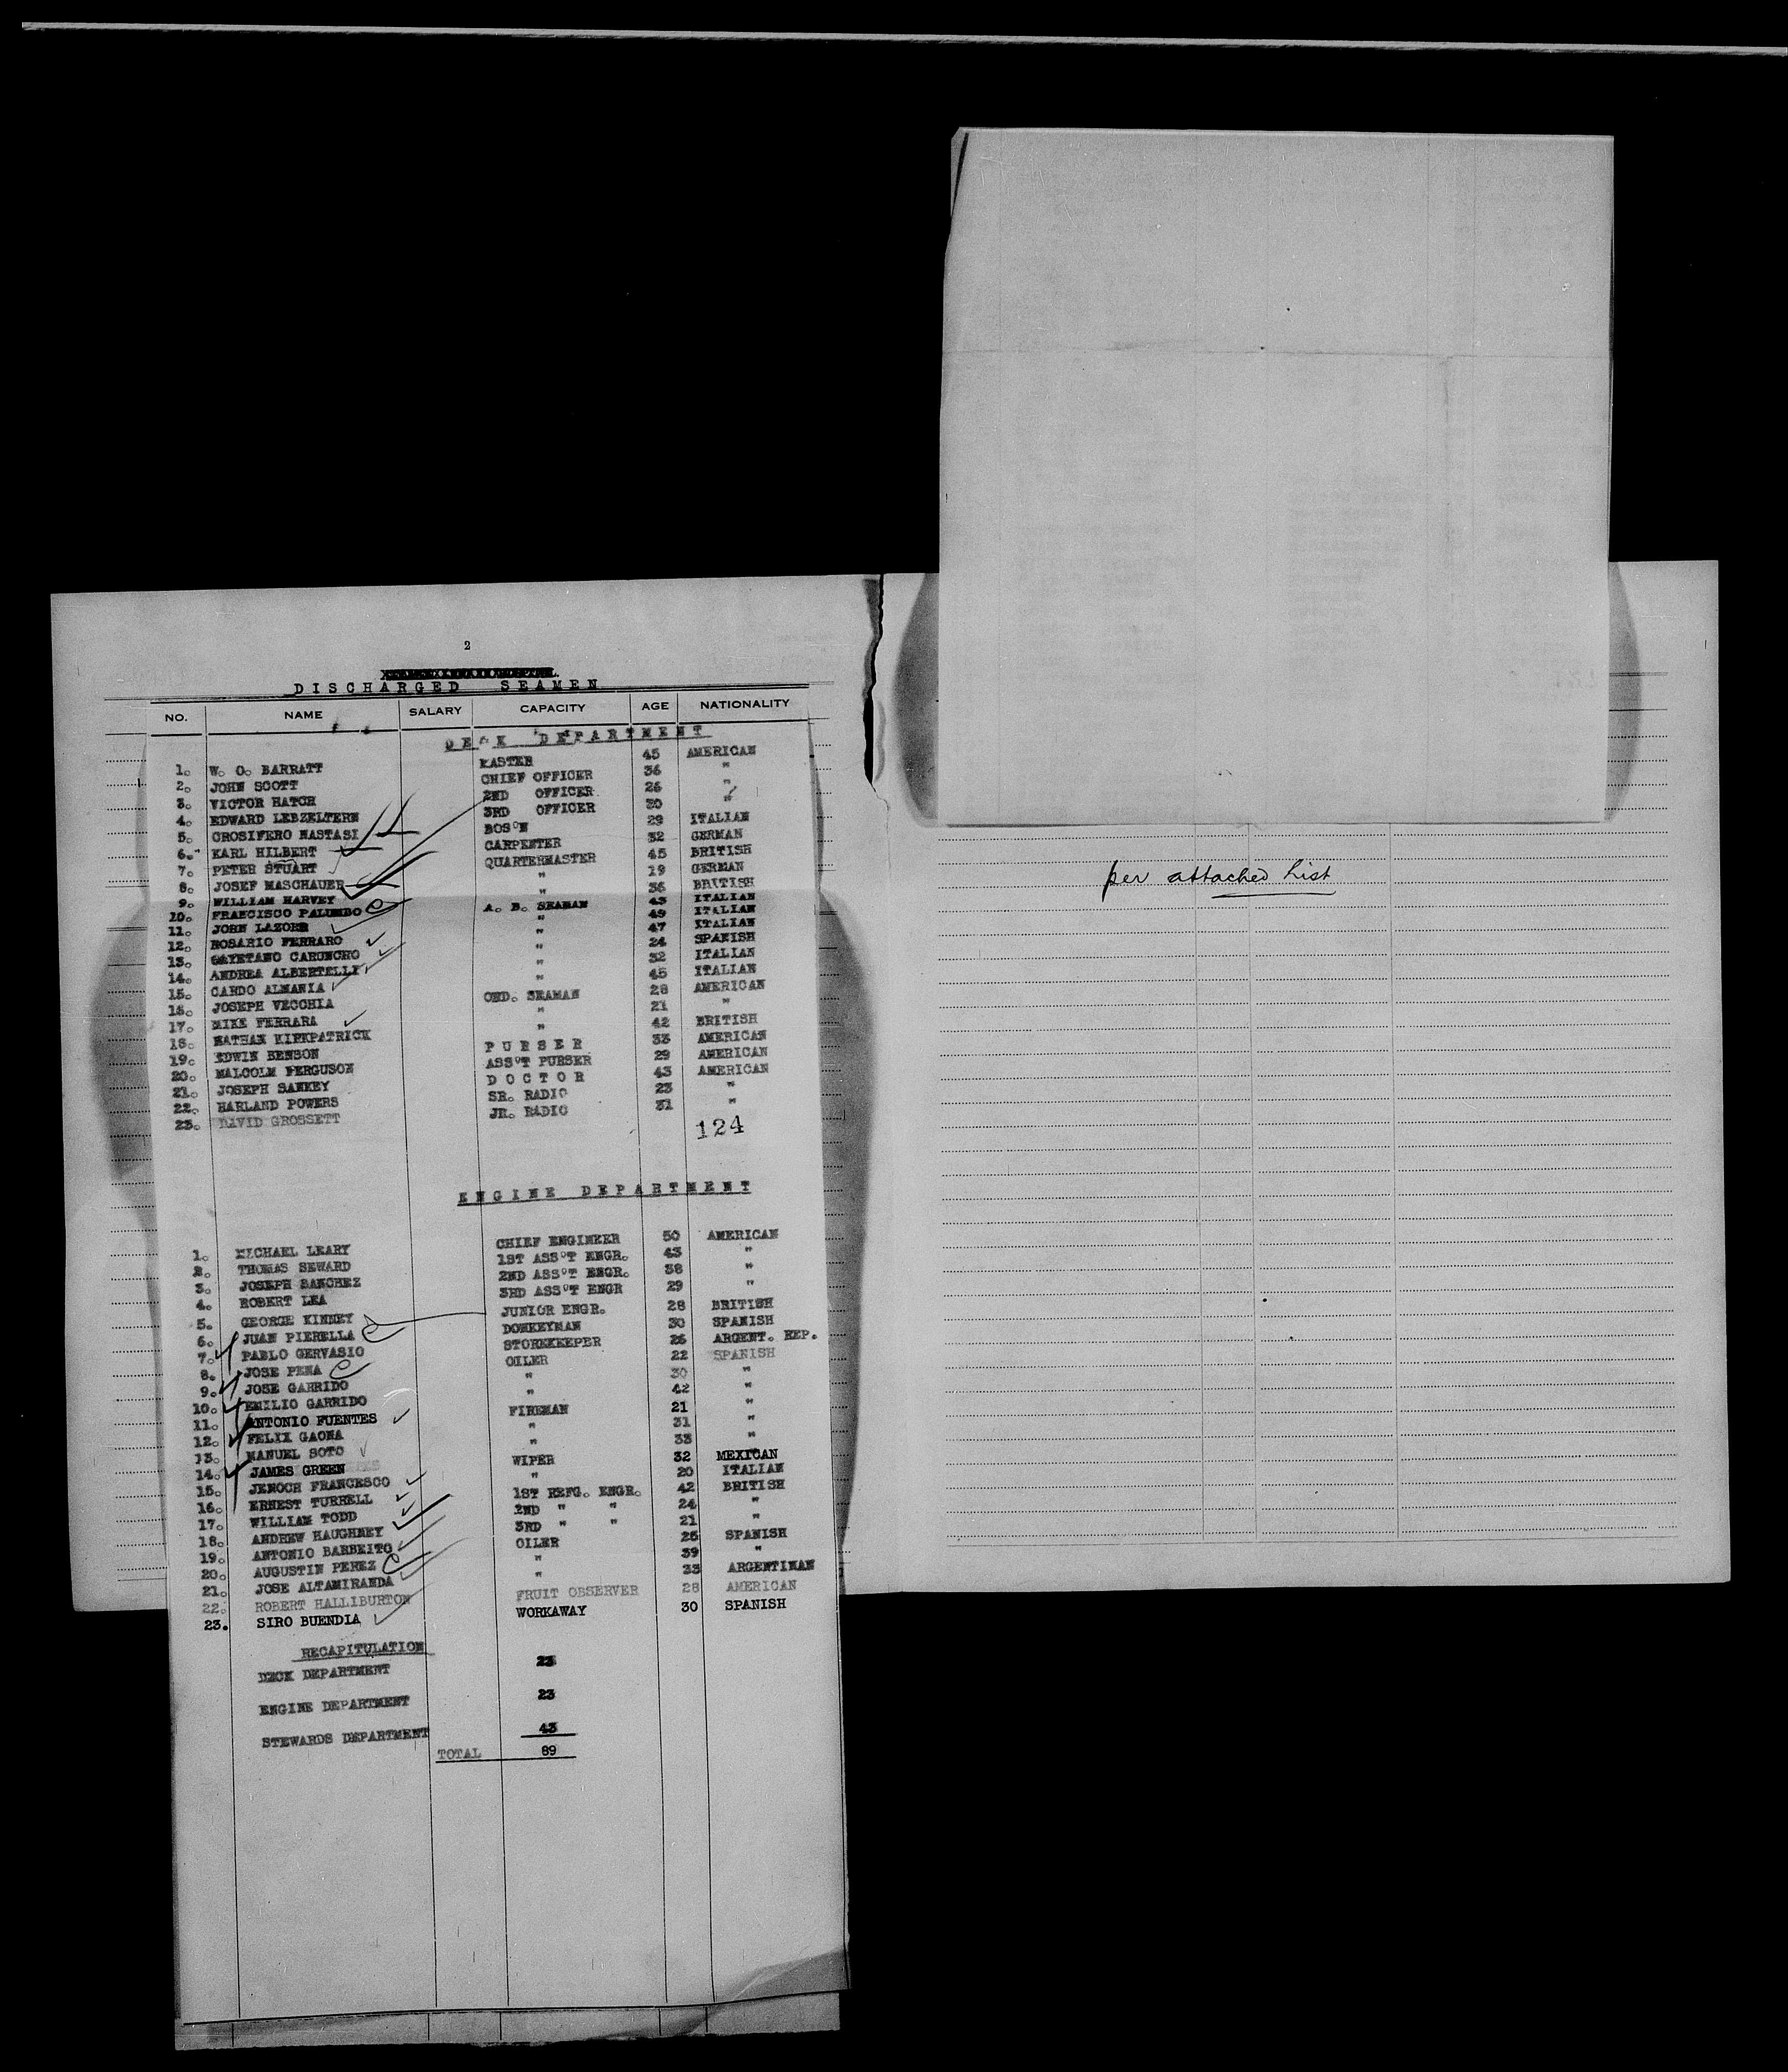 2
DISCHARGED SEAMEN
NO. NAME SALARY CAPACITY AGE NATIONALITY
DECK DEPARTMENT
1. W. O. BARRATT MASTER 45 AMERICAN
2. JOHN SCOTT CHIEF OFFICER 36 "
3. VICTOR HATCH 2ND OFFICER 26 "
4. EDWARD LEBZELTERN 3RD OFFICER 30 "
5. GROSIFERO MASTASI BOS'N 29 ITALIAN
6. KARL HILBERT CARPENTER 32 GERMAN
7. PETER STUART QUARTERMASTER 45 BRITISH
8. JOSEF MASCHAUER " 19 GERMAN
9. WILLIAM HARVEY " 36 BRITISH
10. FRANCISCO PALUMBO A. B. SEAMAN 43 ITALIAN
11. JOHN LAZORE " 49 ITALIAN
12. ROSARIO FERRARO " 47 ITALIAN
13. GAYETANO CARUNCHO " 24 SPANISH
14. ANDREA ALBERTELLI " 32 ITALIAN
15. CARDO ALMANIA " 45 ITALIAN
16. JOSEPH VECCHIA ORD. SEAMAN 28 AMERICAN
17. MIKE FERRARA " 21 "
18. NATHAN KIRKPATRICK " 42 BRITISH
19. EDWIN BENSON PURSER 33 AMERICAN
20. MALCOLM FERGUSON ASS'T PURSER 29 AMERICAN
21. JOSEPH SANKEY DOCTOR 43 AMERICAN
22. HARLAND POWERS SR. RADIO 23 "
23. DAVID GROSSETT JR. RADIO 31 "
124
ENGINE DEPARTMENT
1. MICHAEL LEARY CHIEF ENGINEER 50 AMERICAN
2. THOMAS SEWARD 1ST ASS'T ENGR. 43 "
3. JOSEPH SANCHEZ 2ND ASS'T ENGR. 38 "
4. ROBERT LEA 3RD ASS'T ENGR 29 "
5. GEORGE KINNEY JUNIOR ENGR. 28 BRITISH
6. JUAN PIERELLA DONKEYMAN 30 SPANISH
7. PABLO GERVASIO STOREKEEPER 26 ARGENT. REP.
8. JOSE PENA OILER 22 SPANISH
9. JOSE GARRIDO " 30 "
10. EMILIO GARRIDO " 42 "
11. ANTONIO FUENTES FIREMAN 21 "
12. FELIX GAONA " 31 "
13. MANUEL SOTO " 33 "
14. JAMES GREEN WIPER 32 MEXICAN
15. JENOCH FRANCESCO " 20 ITALIAN
16. ERNEST TURRELL 1ST REFG. ENGR. 42 BRITISH
17. WILLIAM TODD 2ND " " 24 "
18. ANDREW HAUGHNEY 3RD " " 21 "
19. ANTONIO BARBEITO OILER 25 SPANISH
20. AUGUSTIN PEREZ " 39 "
21. JOSE ALTAMIRANDA " 33 ARGENTINAN
22. ROBERT HALLIBURTON FRUIT OBSERVER 28 AMERICAN
23. SIRO BUENDIA WORKAWAY 30 SPANISH
RECAPITULATION
DECK DEPARTMENT 23
ENGINE DEPARTMENT 23
STEWARDS DEPARTMENT 43
TOTAL 89
per attached List